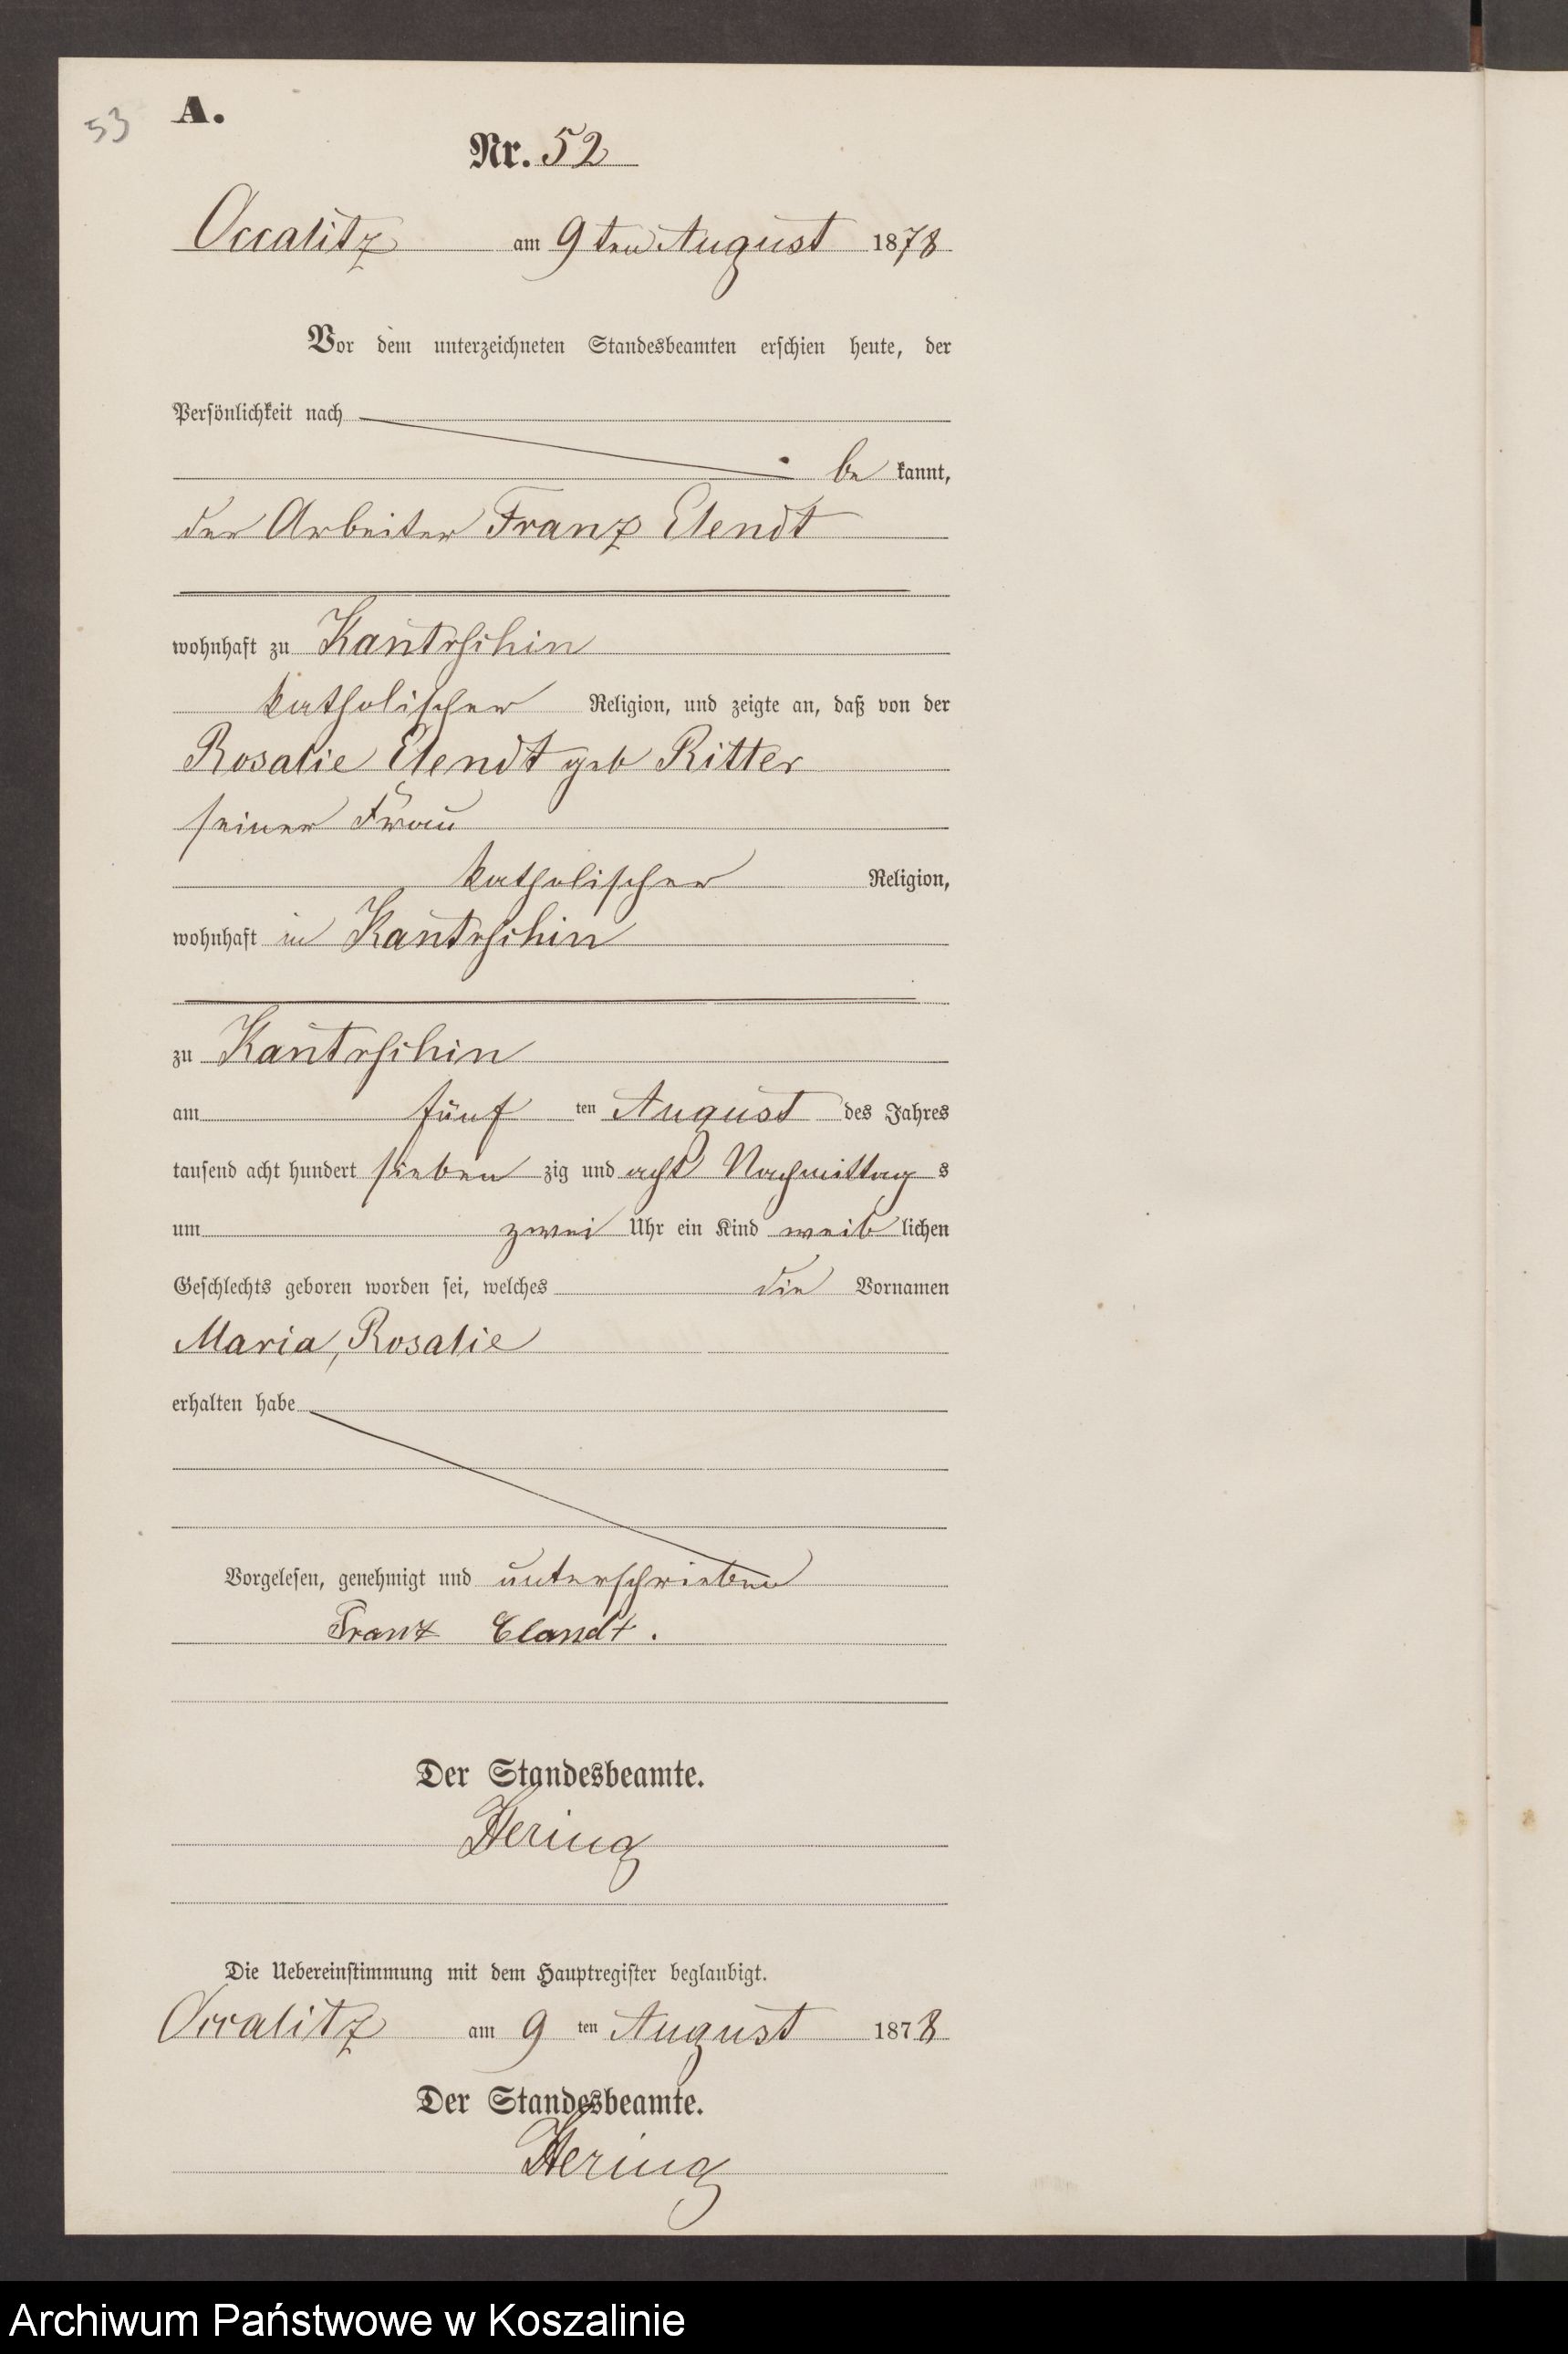 53
A.
Nr. 52
Occalitz am 9ten August 1878
Vor dem unterzeichneten Standesbeamten erschien heute, der
Persönlichkeit nach
be kannt,
der Arbeiter Franz Elendt
wohnhaft zu Kantrschin
katholischer Religion, und zeigte an, daß von der
Rosalie Elendt geb Ritter
seiner Frau
katholischer Religion,
wohnhaft in Kantrschin
zu Kantrschin
am fünf ten August des Jahres
tausend acht hundert sieben zig und acht Nachmittag s
um zwei Uhr ein Kind weib lichen
Geschlechts geboren worden sei, welches die Vornamen
Maria, Rosalie
erhalten habe
Vorgelesen, genehmigt und unterschrieben
Franz Elandt.
Der Standesbeamte.
Hering
Die Uebereinstimmung mit dem Hauptregister beglaubigt.
Occalitz am 9 ten August 1878
Der Standesbeamte.
Hering
Archiwum Państwowe w Koszalinie